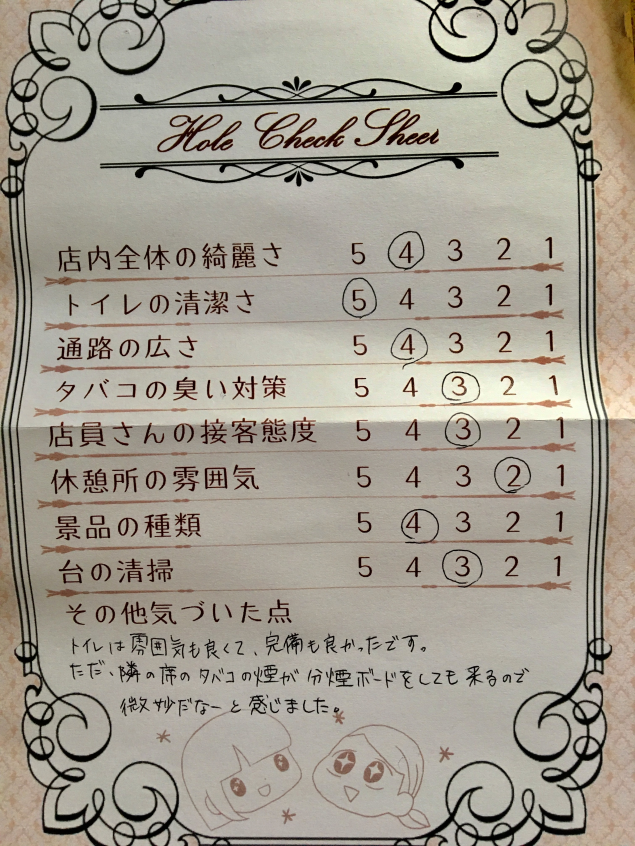 Hole Check Sheet
店内全体の綺麗さ 5 4 3 2 1
トイレの清潔さ 5 4 3 2 1
通路の広さ 5 4 3 2 1
タバコの臭い対策 5 4 3 2 1
店員さんの接客態度 5 4 3 2 1
休憩所の雰囲気 5 4 3 2 1
景品の種類 5 4 3 2 1
台の清掃 5 4 3 2 1
その他気づいた点
トイレは雰囲気も良くて、完備も良かったです。
ただ、隣の席のタバコの煙が分煙ボードをしても来るので
微妙だなーと感じました。